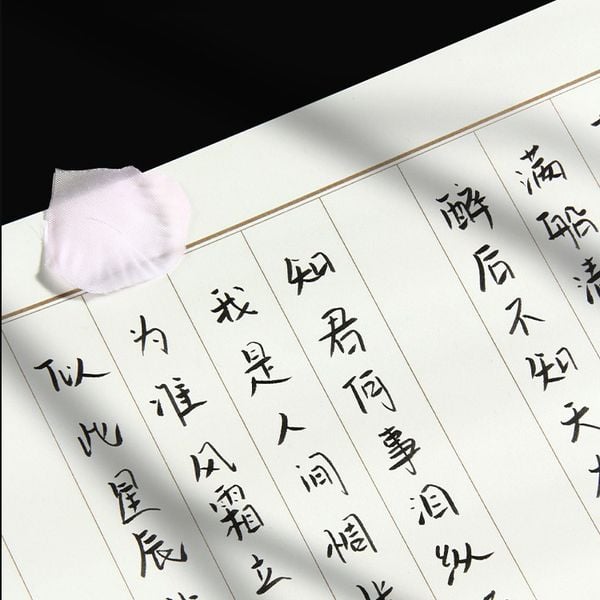 满船清
醉后不知天
知君何事泪纵
我是人间惆
为谁风霜立
似此星辰